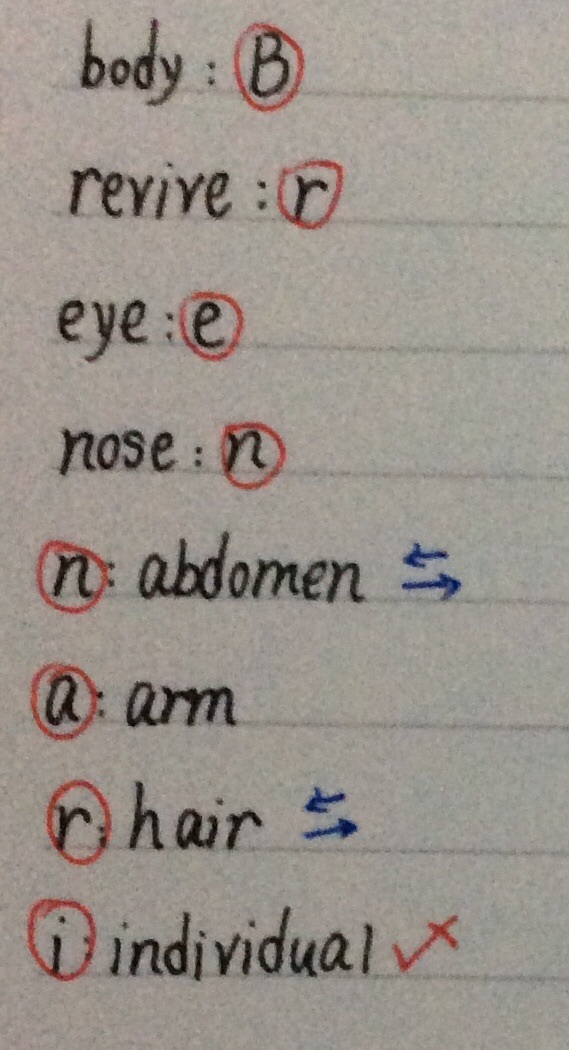 body : B
revive : r
eye : e
nose : n
n : abdomen ⇆
a : arm
r : hair ⇆
i : individual